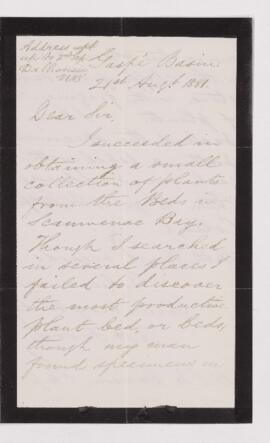 Address
up to
Gaspé Basin
21st Augt 1881.
Dear Sir,
I succeeded in
obtaining a small
collection of plants
from the Beds in
Scaumenac Bay.
Though I searched
in several places I
failed to discover
the most productive
plant bed, or beds,
though my man
found specimens in